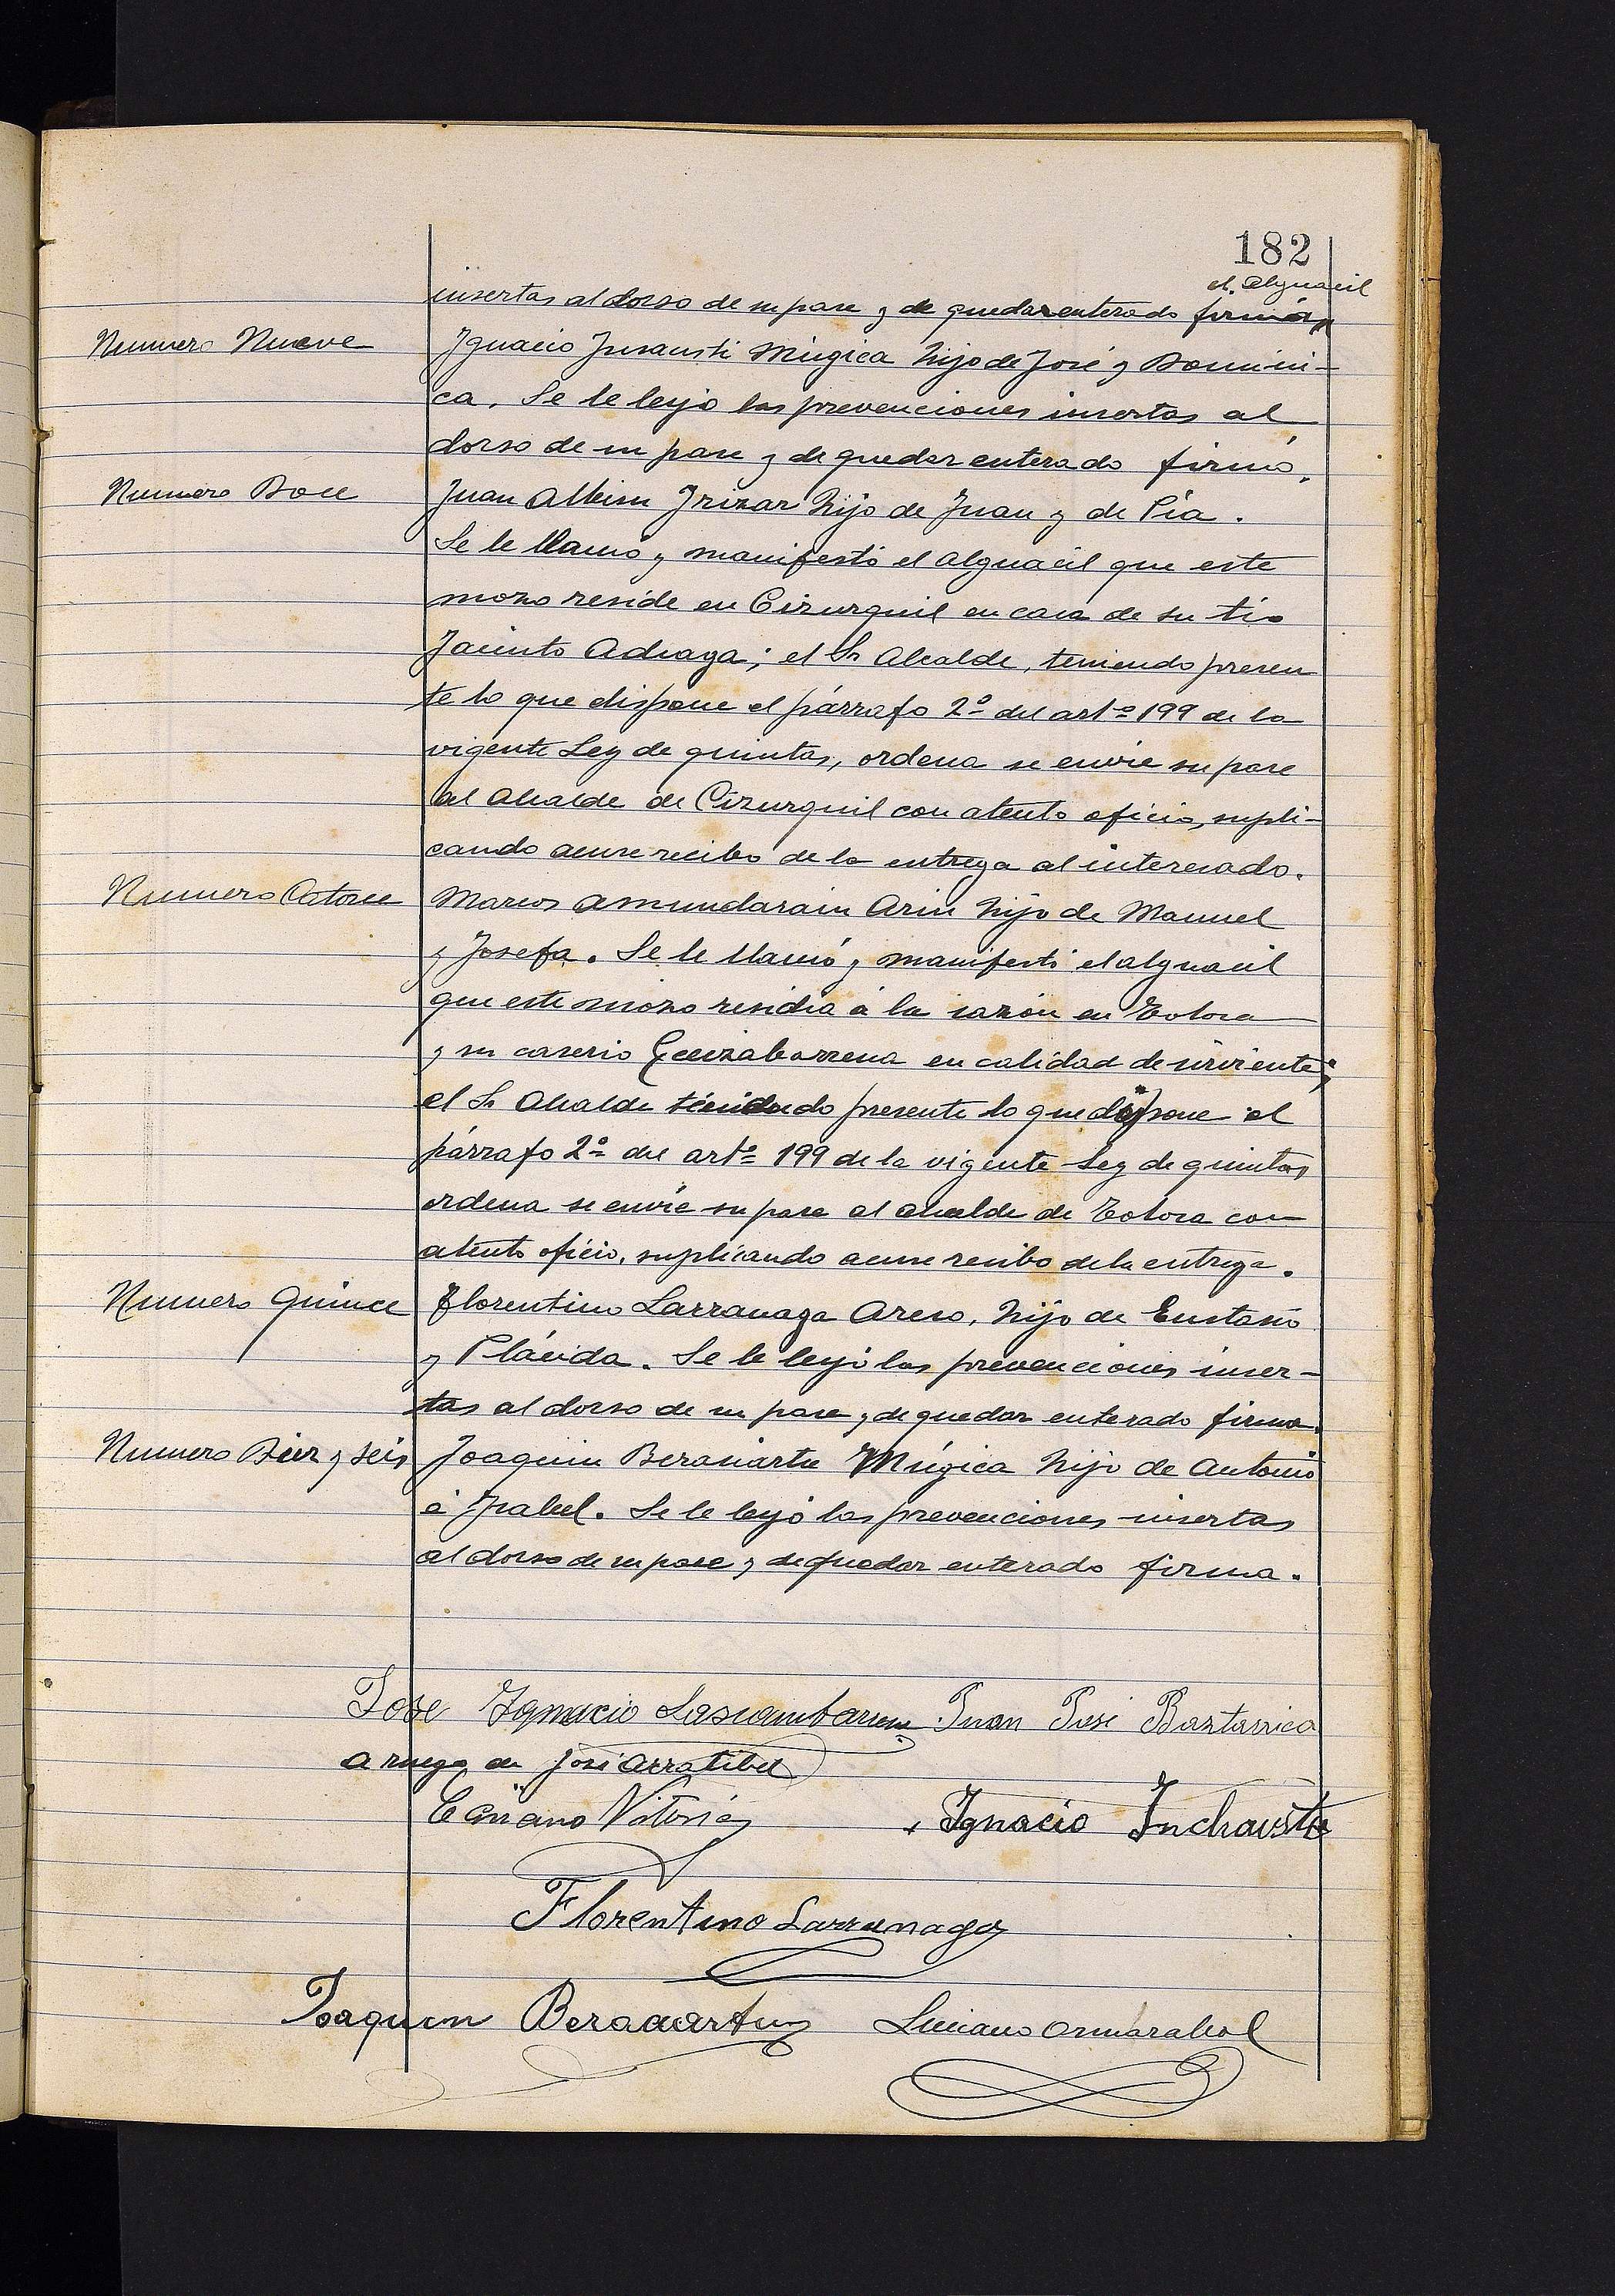 182
el Alguacil
insertas al dorso de su pase y de quedar enterado firmó,
Numero Nueve
Ignacio Insausti Múgica hijo de José y Domini-
ca. Se le leyó las prevenciones insertas al
dorso de su pase y de quedar enterado firmó.
Numero Doce
Juan Albisu Irizar hijo de Juan y de Pía.
Se le llamó y manifestó el alguacil que este
mozo reside en Cizurquil en casa de su tío
Jacinto Adraga; el Sr Alcalde, teniendo presen
te lo que dispone el párrafo 2º del artº 199 de la
vigente Ley de quintas, ordena se envíe su pase
al Alcalde de Cizurquil con atento oficio, supli-
cando acuse recibo de la entrega al interesado.
Numero Catorce
Marcos Amundarain Arin hijo de Manuel
y Josefa. Se le llamó y manifestó el alguacil
que este mozo residía á la sazón en Tolosa
y su caserío en calidad de sirviente;
el Sr Alcalde teniendo presente lo que dispone el
párrafo 2º del artº 199 de la vigente Ley de quintas,
ordena se envíe su pase al alcalde de Tolosa con
atento oficio, suplicando acuse recibo de la entrega.
Numero Quince
Florentino Larranaga Areso, hijo de Eustasio
y Plácida. Se le leyó las prevenciones inser-
tas al dorso de su pase y de quedar enterado firma.
Numero Diez y seis
Joaquin Berasiartu Múgica hijo de Antonio
é Isabel. Se le leyó las prevenciones insertas
al dorso de su pase y de quedar enterado firma.
Jose Ygnacio Lascambarena Juan José Baztarrica
a ruego de José Arratibel
Casiano Vitoria
Ygnacio Inchausti
Florentino Larranaga
Joaquin Luciano Ormazabal